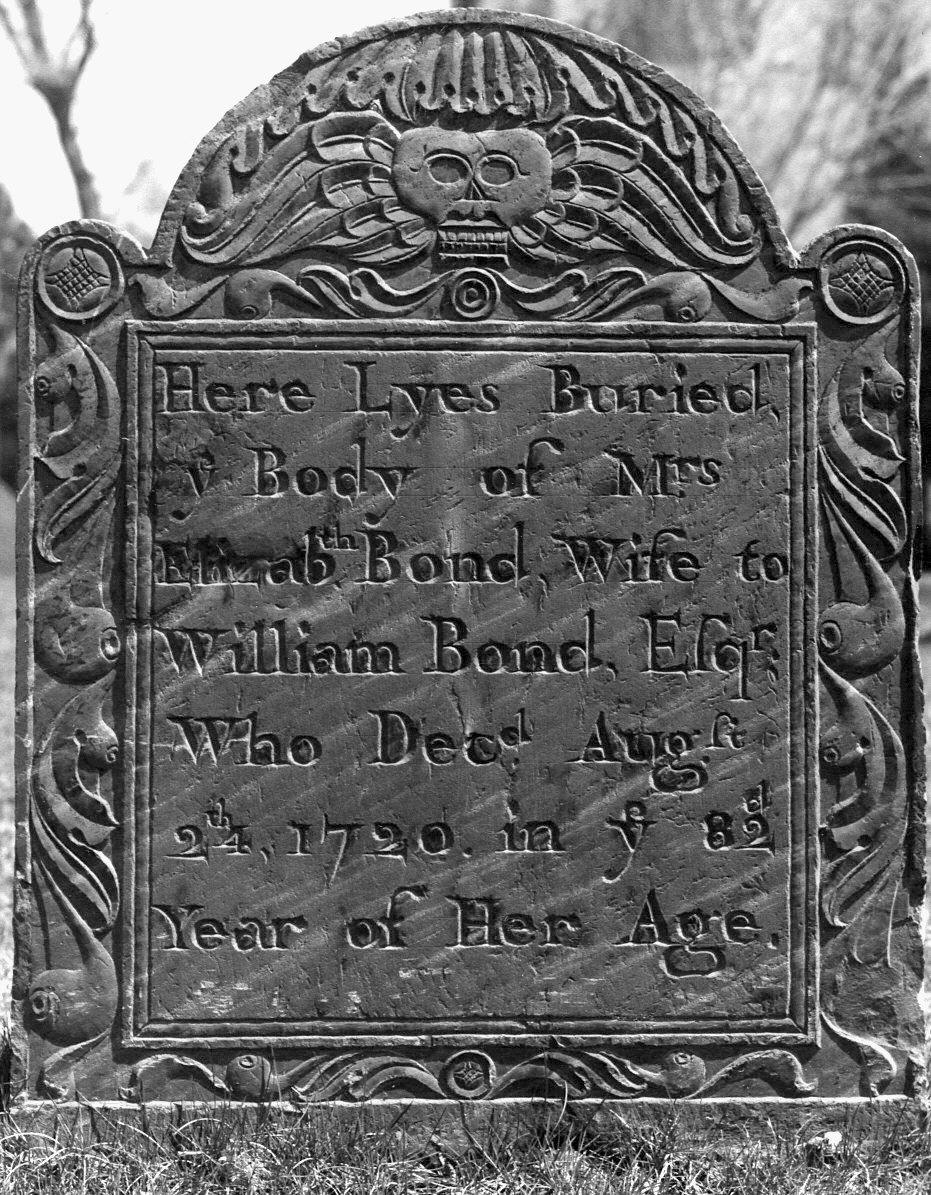 Here Lyes Buried,
yͤ Body of Mʳˢ
Elizabᵗʰ Bond, Wife to
William Bond, Eſqʳ;
Who Decᵈ. Augſᵗ
24ᵗʰ, 1720. in yͤ 82ᵈ
Year of Her Age.